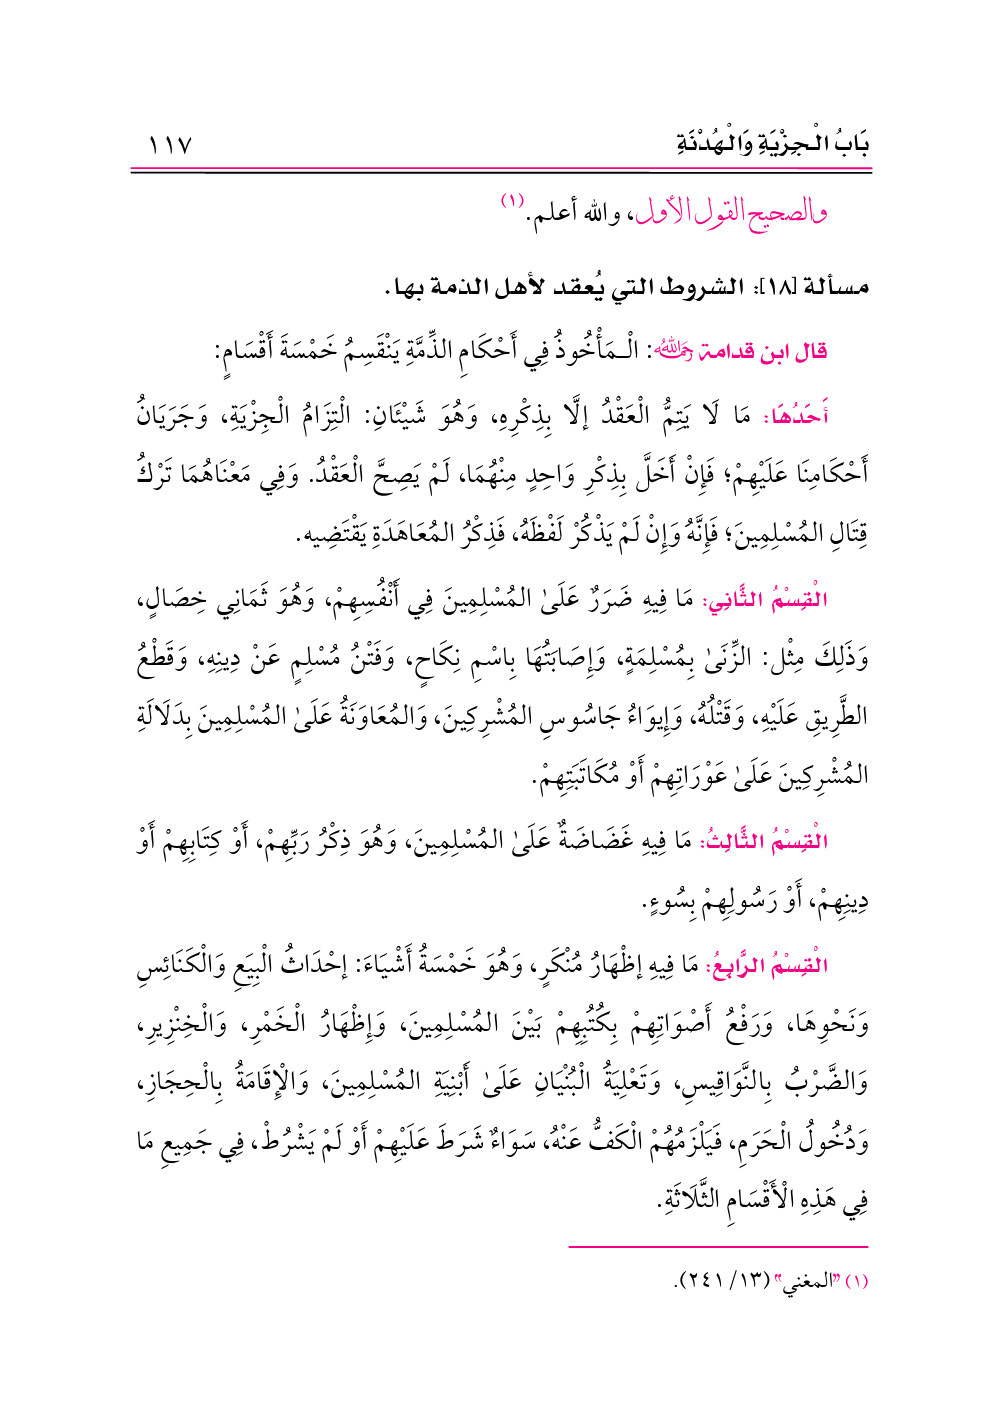 بَابُ الْجِزْيَةِ وَالْهُدْنَةِ ١١٧
والصحيح القول الأول، والله أعلم.(١)
مسألة [١٨]: الشروط التي يُعقد لأهل الذمة بها.
قال ابن قدامة رحمه الله: الْـمَأْخُوذُ فِي أَحْكَامِ الذِّمَّةِ يَنْقَسِمُ خَمْسَةَ أَقْسَامٍ:
أَحَدُهَا: مَا لَا يَتِمُّ الْعَقْدُ إلَّا بِذِكْرِهِ، وَهُوَ شَيْئَانِ: الْتِزَامُ الْجِزْيَةِ، وَجَرَيَانُ
أَحْكَامِنَا عَلَيْهِمْ؛ فَإِنْ أَخَلَّ بِذِكْرِ وَاحِدٍ مِنْهُمَا، لَمْ يَصِحَّ الْعَقْدُ. وَفِي مَعْنَاهُمَا تَرْكُ
قِتَالِ المُسْلِمِينَ؛ فَإِنَّهُ وَإِنْ لَمْ يَذْكُرْ لَفْظَهُ، فَذِكْرُ المُعَاهَدَةِ يَقْتَضِيه.
الْقِسْمُ الثَّانِي: مَا فِيهِ ضَرَرٌ عَلَىٰ المُسْلِمِينَ فِي أَنْفُسِهِمْ، وَهُوَ ثَمَانِي خِصَالٍ،
وَذَلِكَ مِثْل: الزِّنَىٰ بِمُسْلِمَةٍ، وَإِصَابَتُهَا بِاسْمِ نِكَاحٍ، وَفَتْنُ مُسْلِمٍ عَنْ دِينِهِ، وَقَطْعُ
الطَّرِيقِ عَلَيْهِ، وَقَتْلُهُ، وَإِيوَاءُ جَاسُوسِ المُشْرِكِينَ، وَالمُعَاوَنَةُ عَلَىٰ المُسْلِمِينَ بِدَلَالَةِ
المُشْرِكِينَ عَلَىٰ عَوْرَاتِهِمْ أَوْ مُكَاتَبَتِهِمْ.
الْقِسْمُ الثَّالِثُ: مَا فِيهِ غَضَاضَةٌ عَلَىٰ المُسْلِمِينَ، وَهُوَ ذِكْرُ رَبِّهِمْ، أَوْ كِتَابِهِمْ أَوْ
دِينِهِمْ، أَوْ رَسُولِهِمْ بِسُوءٍ.
الْقِسْمُ الرَّابِعُ: مَا فِيهِ إظْهَارُ مُنْكَرٍ، وَهُوَ خَمْسَةُ أَشْيَاءَ: إحْدَاثُ الْبِيَعِ وَالْكَنَائِسِ
وَنَحْوِهَا، وَرَفْعُ أَصْوَاتِهِمْ بِكُتُبِهِمْ بَيْنَ المُسْلِمِينَ، وَإِظْهَارُ الْخَمْرِ، وَالْخِنْزِيرِ،
وَالضَّرْبُ بِالنَّوَاقِيسِ، وَتَعْلِيَةُ الْبُنْيَانِ عَلَىٰ أَبْنِيَةِ المُسْلِمِينَ، وَالْإِقَامَةُ بِالْحِجَازِ،
وَدُخُولُ الْحَرَمِ، فَيَلْزَمُهُمْ الْكَفُّ عَنْهُ، سَوَاءٌ شَرَطَ عَلَيْهِمْ أَوْ لَمْ يَشْرُطْ، فِي جَمِيعِ مَا
فِي هَذِهِ الْأَقْسَامِ الثَّلَاثَةِ.
(١) "المغني" (١٣/ ٢٤١).